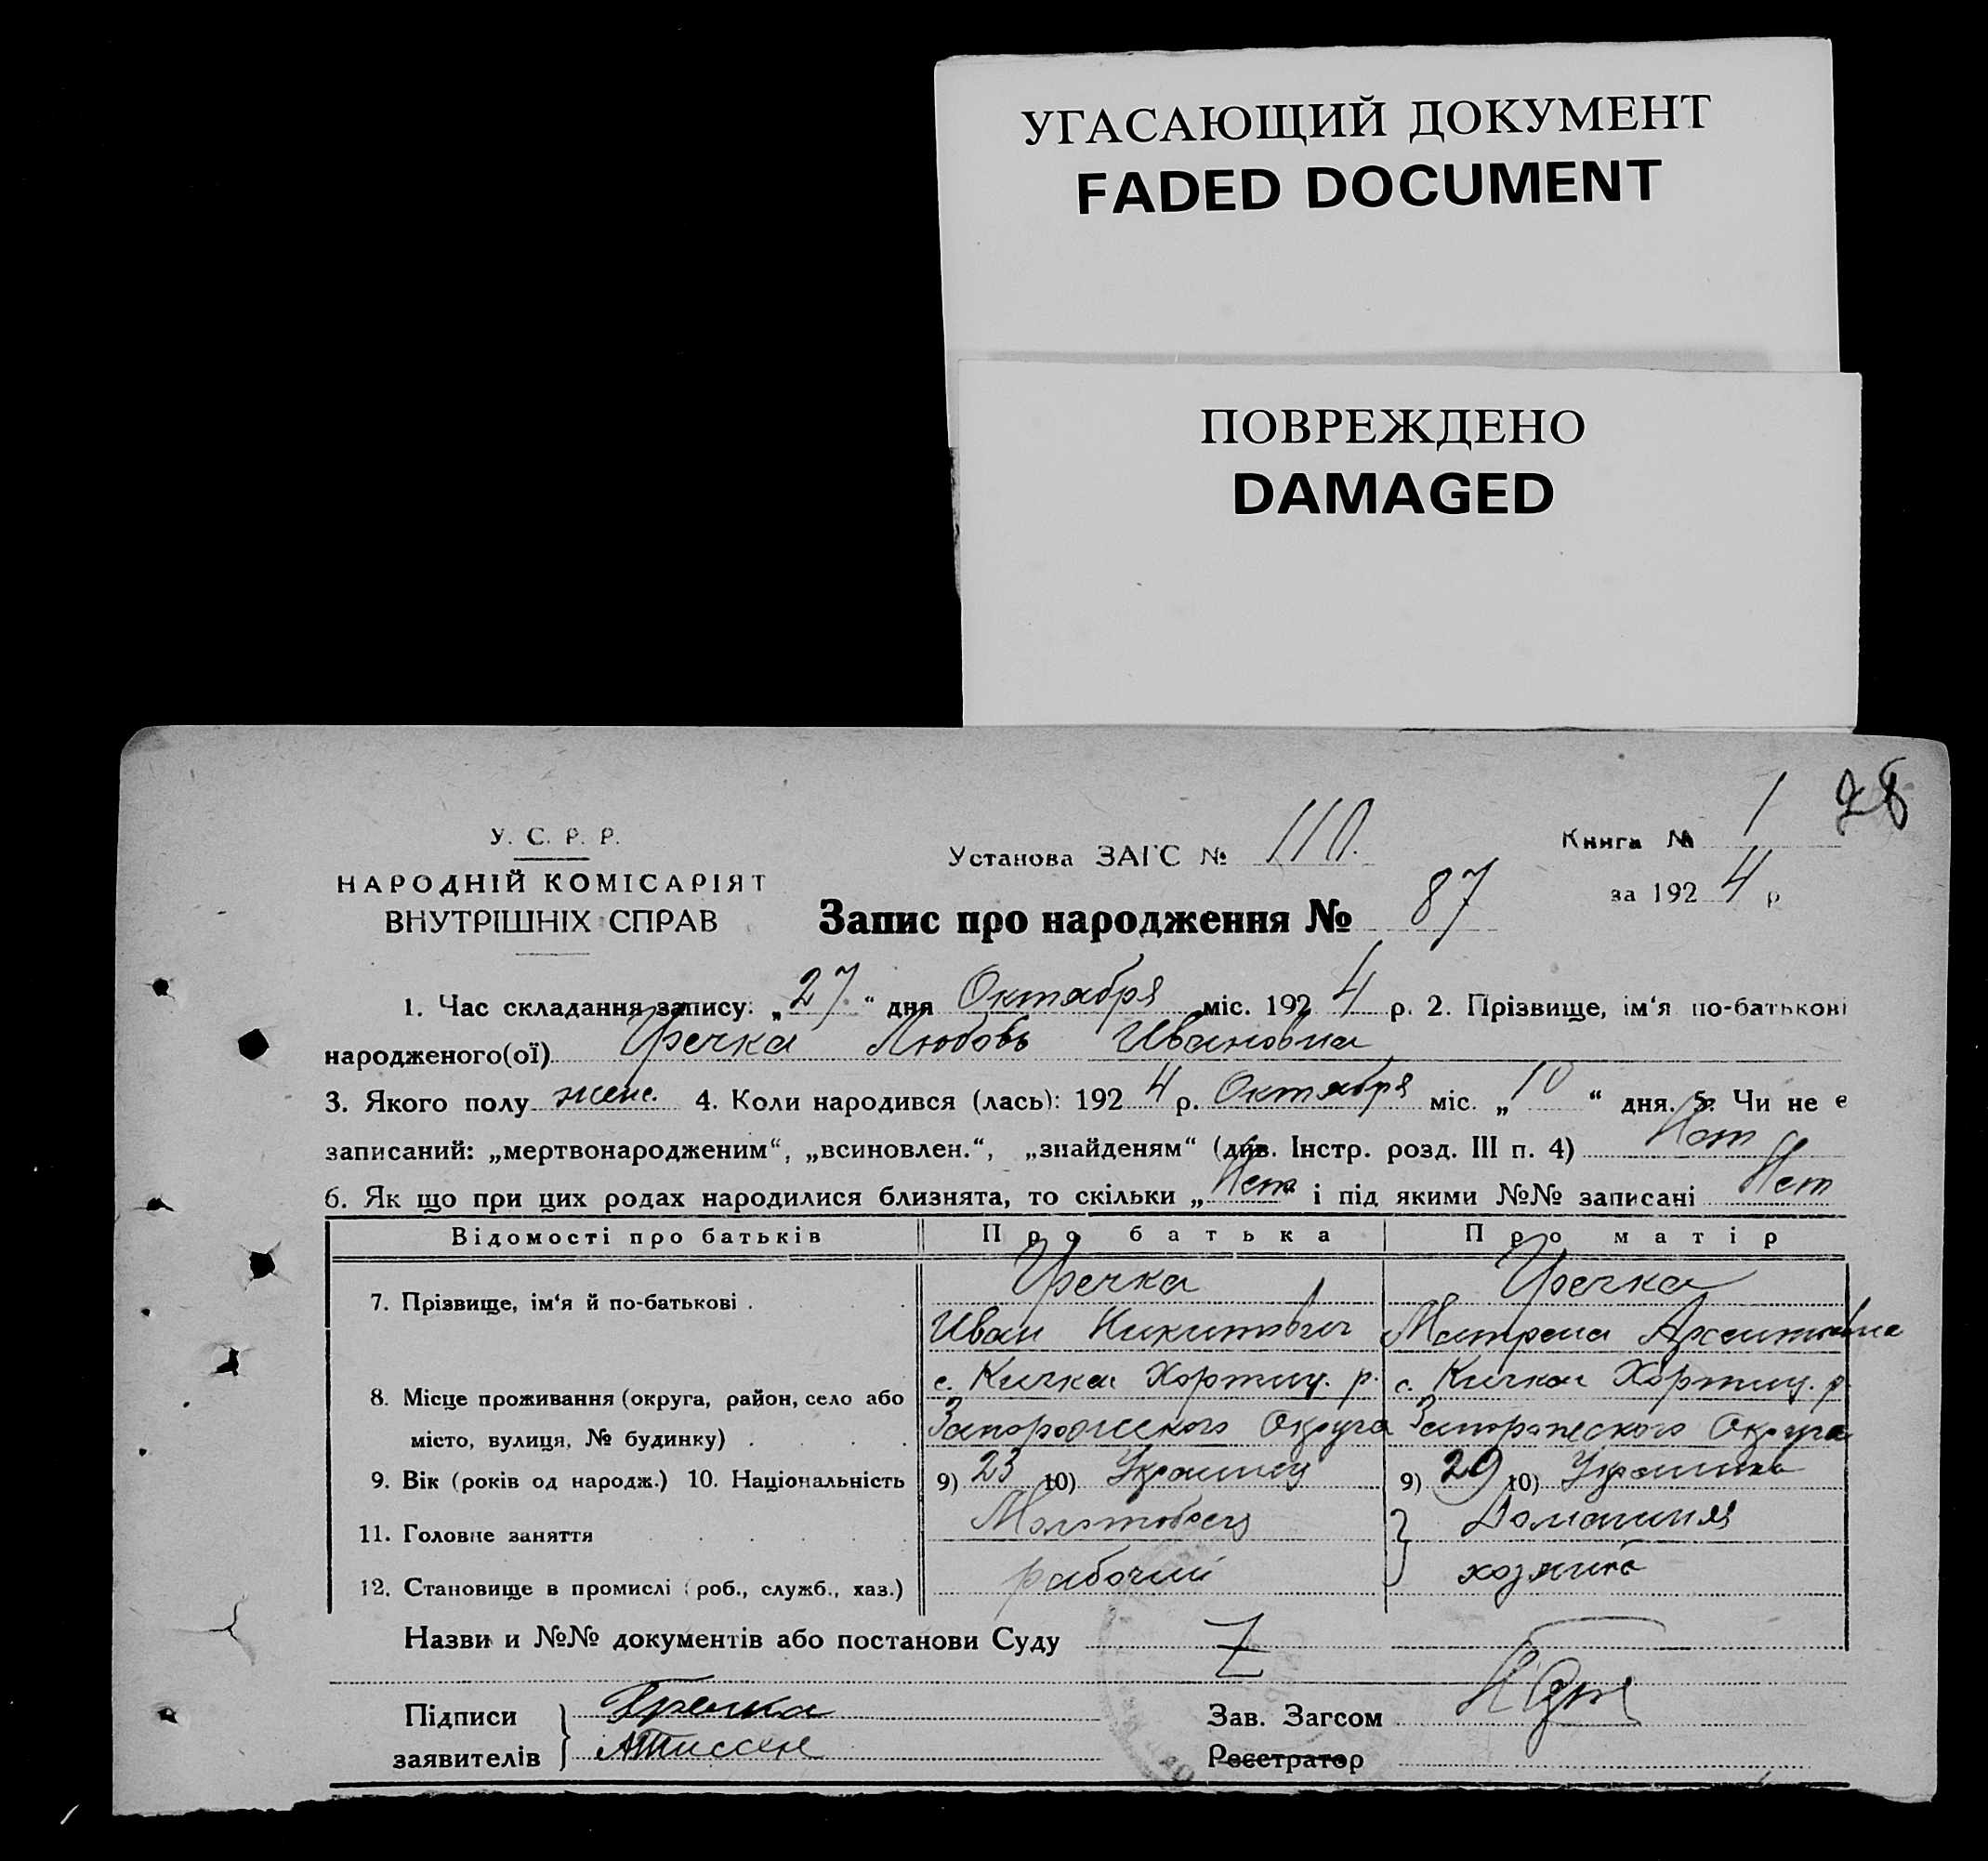 УГАСАЮЩИЙ ДОКУМЕНТ
FADED DOCUMENT
ПОВРЕЖДЕНО
DAMAGED
28
У. С. Р. Р.
НАРОДНІЙ КОМІСАРІЯТ
ВНУТРІШНІХ СПРАВ
Установа ЗАГС № 110.
Книга № 1
за 1924 р
Запис про народження № 87
1. Час складання запису: „27.“ дня Октября міс. 1924 р. 2. Прізвище, ім‘я по-батькові
народженого(ої) Гречка Любовь Ивановна
3. Якого полу женс. 4. Коли народився (лась): 1924 р. Октября міс. „10“ дня. 5. Чи не є
записаний: „мертвонародженим“, „всиновлен.“, „знайденям“ (див. Інстр. розд. III п. 4) Нет
6. Як що при цих родах народилися близнята, то скільки „Нет“ і під якими №№ записані Нет
Відомості про батьків Про батька Про матір
7. Прізвище, ім‘я й по-батькові . Гречка Гречка
Иван Никитович Матрена
8. Місце проживання (округа, район, село або с. Кичкас Хортиц. р. с. Кичкас Хортиц. р.
місто, вулиця, № будинку) . Запорожского Округа Запорожского Округа
9. Вік (років од народж.) 10. Національність 9) 23 10) Украинец 9) 29 10) Украинка
11. Головне заняття Молотобоец Домашняя
12. Становище в промислі (роб., служб., хаз.) рабочий хозяйка
Назви и №№ документів або постанови Суду Z
Підписи Гречка Зав. Загсом
заявителів АТиссен Реєстратор